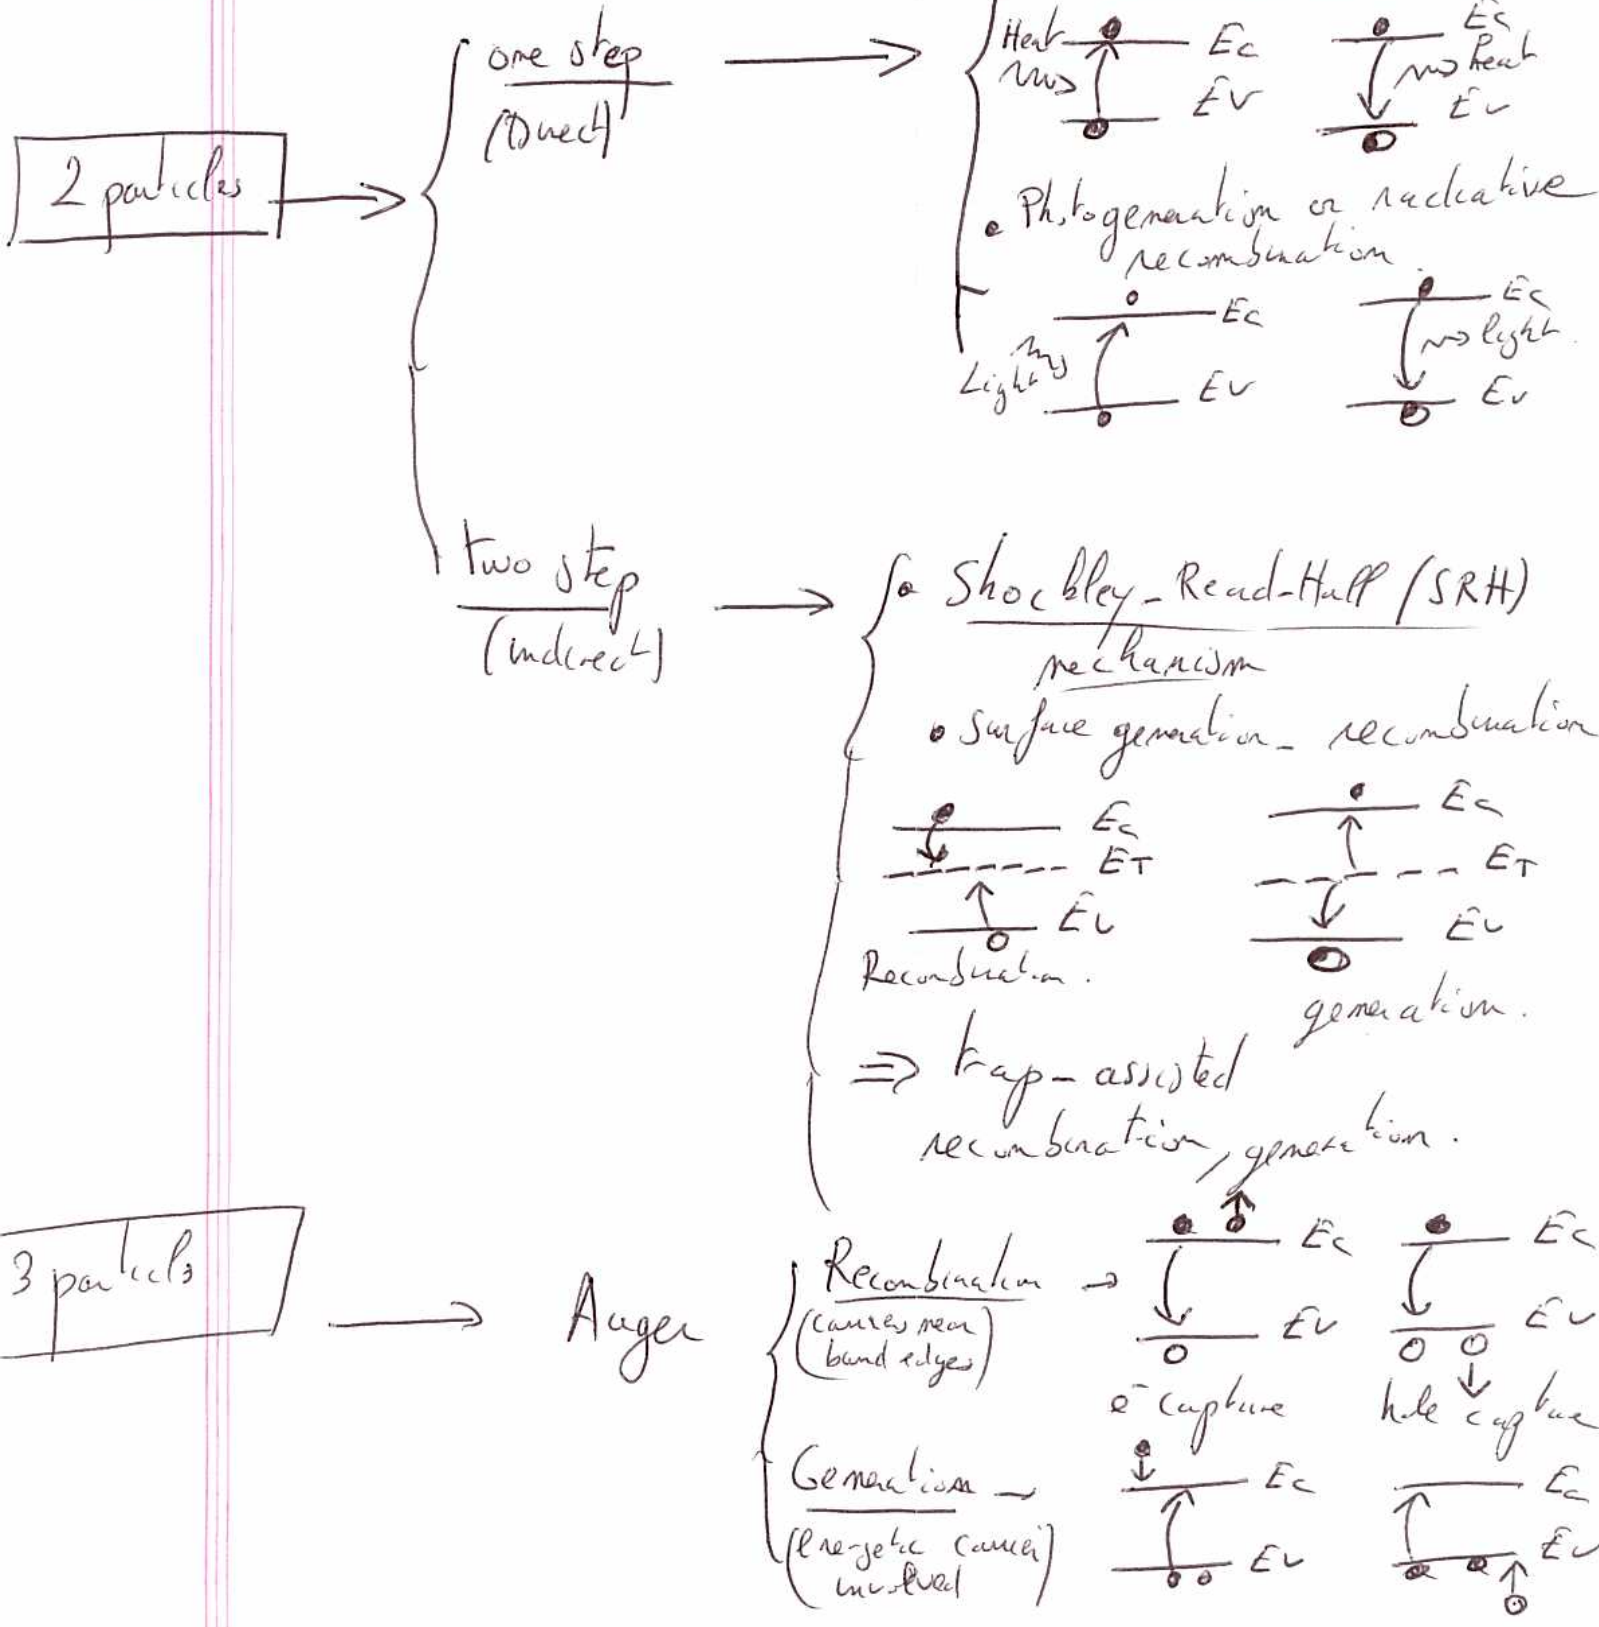 one step
(Direct)
Heat
Ec
Ev
Ec
heat
Ev
2 particles
• Photogeneration or radiative
recombination.
Ec
Light
Ev
Ec
light.
Ev
two step
(indirect)
• Shockley-Read-Hall (SRH)
mechanism
• Surface generation - recombination
Ec
ET
Ev
Recombination.
Ec
ET
Ev
generation.
⇒ trap-assisted
recombination, generation.
3 particles
Auger
Recombination →
(carriers near
band edges)
Ec
Ev
e⁻ capture
Ec
Ev
hole capture
Generation →
(energetic carrier
involved)
Ec
Ev
Ec
Ev